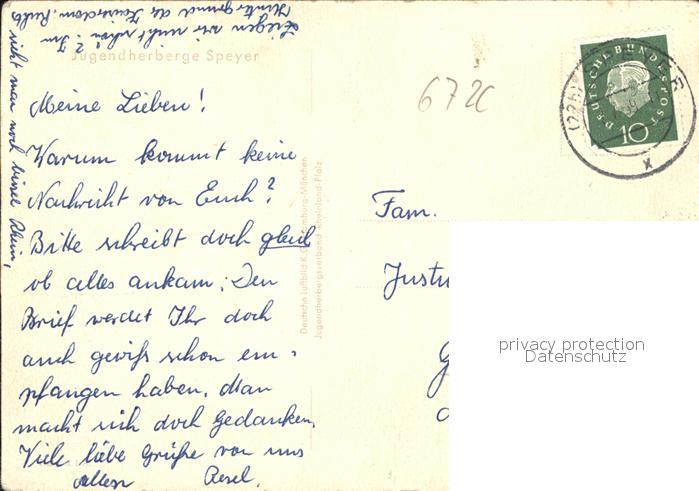 Liegen wir nicht schön? Im
Hintergrund der Kaiserdom. Rechts
sieht man noch bissel Rhein,
Jugendherberge Speyer
Meine Lieben!
Warum kommt keine
Nachricht von Euch?
Bitte schreibt doch gleich
ob alles ankam. Den
Brief werdet Ihr doch
auch gewiß schon em-
pfangen haben. Man
macht sich doch Gedanken.
Viele liebe Grüße von uns
allen Resel.
Deutsche Luftbild K.G. Hamburg-München
Jugendherbergsverband Rheinland-Pfalz
672C
DEUTSCHE BUNDESPOST
10
(22b)
x
Fam.
Justu
G
privacy protection
Datenschutz